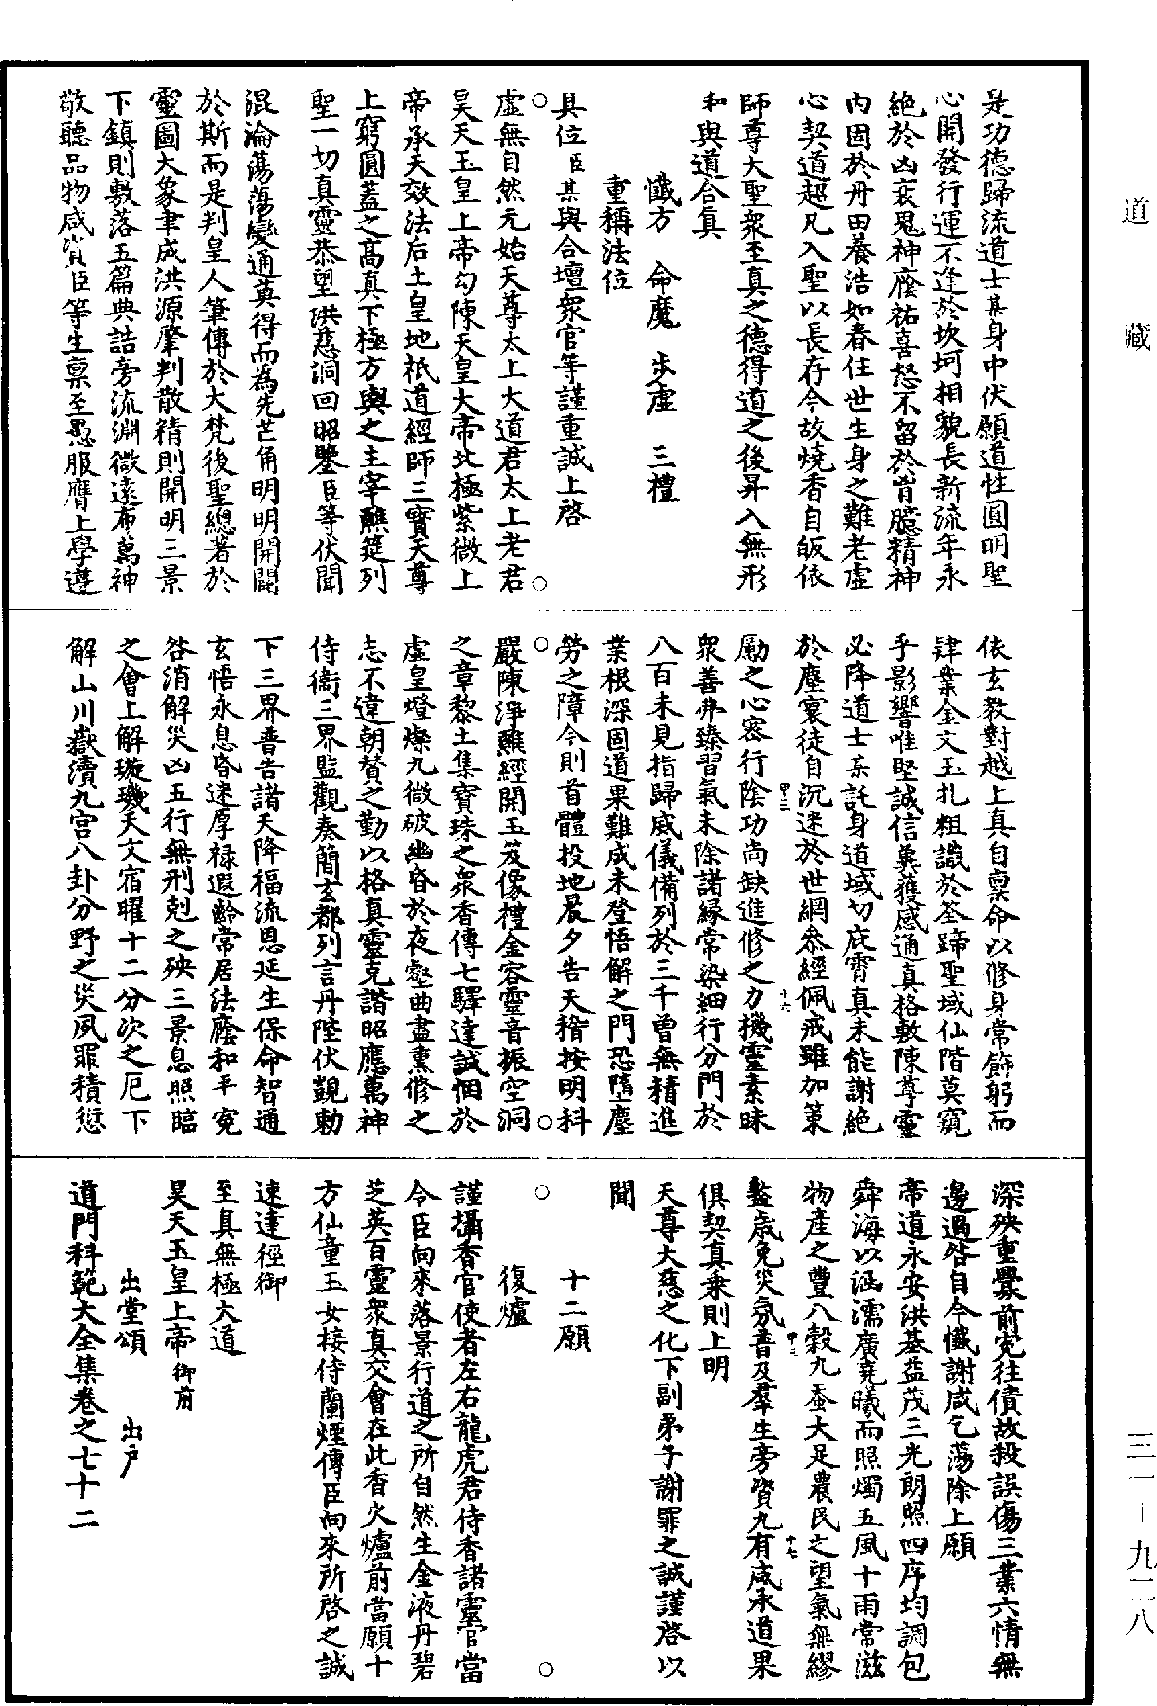 道藏
三一—九二八
是功德歸流道士某身中伏願道性圓明聖
心開發行運不逢於坎坷相貌長新流年永
絕於凶衰鬼神廕祐喜怒不留於胷臆精神
內固於丹田養浩如春住世生身之難老虛
心契道超凡入聖以長存今故燒香自皈依
師尊大聖衆至真之德得道之後昇入無形
和與道合真
懺方 命魔 步虛 三禮
重稱法位
具位臣某與合壇衆官等謹重誠上啓
虛無自然元始天尊太上大道君太上老君
昊天玉皇上帝勾陳天皇大帝北極紫微上
帝承天效法后土皇地祇道經師三寶天尊
上窮圓蓋之高真下極方輿之主宰醮筵列
聖一切真靈恭望洪慈洞回昭鑒臣等伏聞
混淪蕩蕩變通莫得而為先芒角明明開闢
於斯而是判皇人筆傳於大梵後聖總著於
靈圖大象聿成洪源肇判散精則開明三景
下鎮則敷落五篇典誥旁流淵微遠布萬神
敬聽品物咸資臣等生禀至愚服膺上學遵
依玄教對越上真自禀命以修身常飾躬而
肄業金文玉札粗識於筌蹄聖域仙階莫窺
乎影響唯堅誠信冀獲感通真格敷陳尊靈
必降道士某託身道域切庇霄真未能謝絕
於塵寰徒自沉迷於世網叅經佩戒雖加策
勵之心密行陰功尚缺進修之力機靈素昧
衆善弗臻習氣未除諸緣常染細行分門於
八百未見指歸威儀備列於三千曾無精進
業根深固道果難成未登悟解之門恐墮塵
勞之障今則首體投地晨夕告天稽按明科
嚴陳淨醮經開玉笈像禮金容靈音振空洞
之章黎土集寶珠之衆香傳七驛達誠悃於
虛皇燈燦九微破幽昏於夜壑曲盡熏修之
志不違朝贊之勤以格真靈克諧昭應萬神
侍衞三界監觀奏簡玄都列言丹陛伏覬勅
下三界普告諸天降福流恩延生保命智通
玄悟永息昏迷厚祿遐齡常居法廕和平寃
咎消解災凶五行無刑剋之殃三景息照臨
之會上解璇璣天文宿曜十二分次之厄下
解山川嶽瀆九宮八卦分野之災夙罪積愆
深殃重舋前寃往債故殺誤傷三業六情無
邊過咎自今懺謝咸乞蕩除上願
帝道永安洪基益茂三光朗照四序均調包
舜海以涵濡廣堯曦而照燭五風十雨常滋
物產之豐八穀九蚕大足農民之望氣無繆
盭歲免災氛普及羣生旁資九有咸承道果
俱契真乗則上明
天尊大慈之化下副弟子謝罪之誠謹啓以
聞
十二願
復爐
謹攝香官使者左右龍虎君侍香諸靈官當
令臣向來落景行道之所自然生金液丹碧
芝英百靈衆真交會在此香火爐前當願十
方仙童玉女接侍蘭煙傳臣向來所啓之誠
速達徑御
至真無極大道
昊天玉皇上帝御前
出堂頌 出戶
道門科範大全集卷之七十二